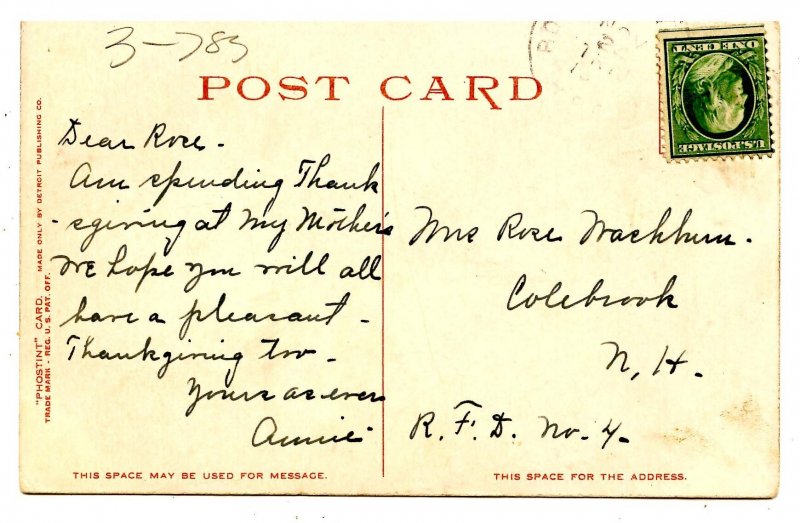 3-785
POST CARD
ONE CENT
U.S. POSTAGE
Dear Rose.
Am spending Thank
-sgiving at My Mother's
We hope you will all
have a pleasant -
Thanksgiving too -
Yours as ever
Annie
Mrs Rose Washburn.
Colebrook
N, H.
R. F. D. No. 4.
"PHOSTINT" CARD. MADE ONLY BY DETROIT PUBLISHING CO.
TRADE MARK - REG. U. S. PAT. OFF.
THIS SPACE MAY BE USED FOR MESSAGE.
THIS SPACE FOR THE ADDRESS.